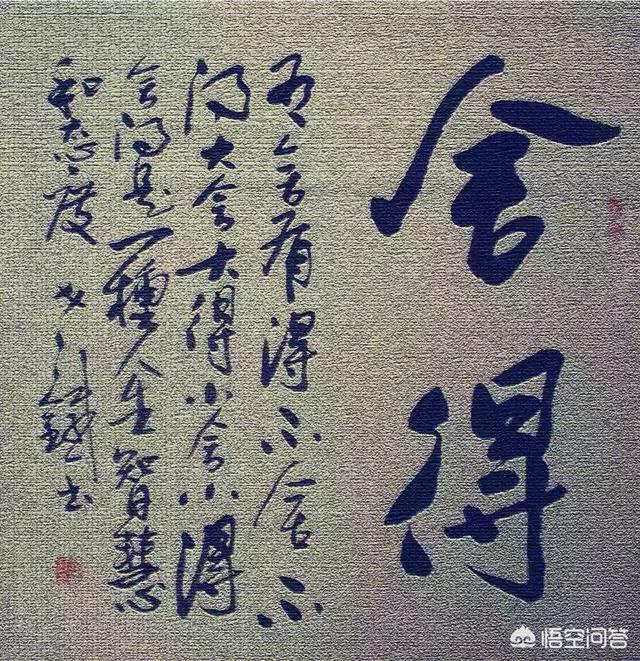 舍得
有舍有得不舍不
得大舍大得小舍小得
舍得是一種人生智慧
和态度
书
悟空问答